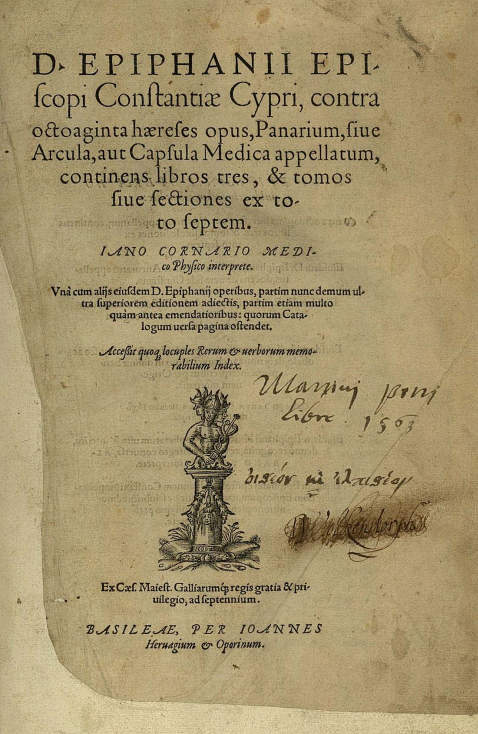 D. EPIPHANII EPI-
scopi Constantiæ Cypri, contra
octoaginta hæreses opus, Panarium, siue
Arcula, aut Capsula Medica appellatum,
continens libros tres, & tomos
siue sectiones ex to-
to septem.
IANO CORNARIO MEDI-
co Physico interprete.
Vnà cum alijs eiusdem D. Epiphanij operibus, partim nunc demum ul-
tra superiorem editionem adiectis, partim etiam multo
quàm antea emendatioribus: quorum Cata-
logum uersa pagina ostendet.
Accessit quoq; locuples Rerum & uerborum memo-
rabilium Index.
libre 1563
Ex Cæs. Maiest. Galliarumq́; regis gratia & pri-
uilegio, ad septennium.
BASILEAE, PER IOANNES
Heruagium & Oporinum.